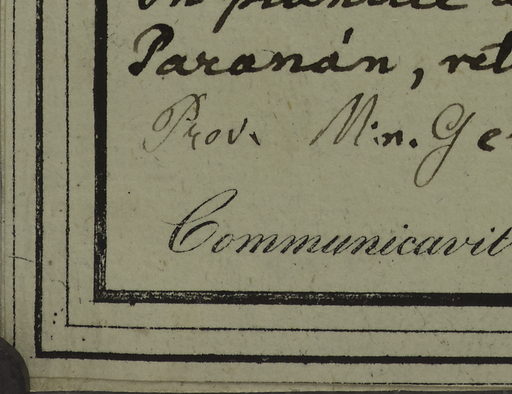 Paranán, ret
Prov. Min. Ge
Communicavit